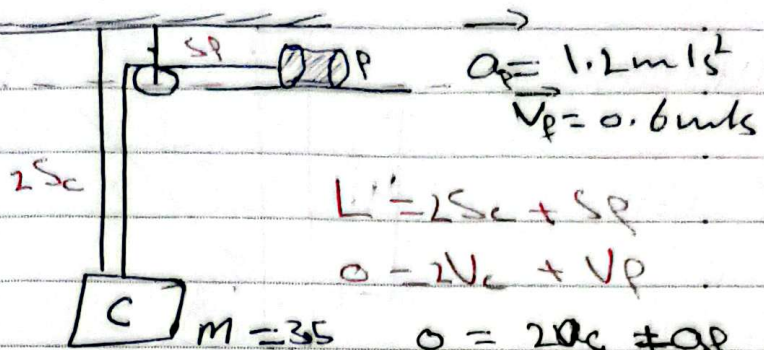 Sp P a_p = 1.2 m/s²
V_p = 0.6 m/s
2Sc
L = 2Sc + Sp
0 = 2Vc + Vp
C M = 35 0 = 2ac + ap